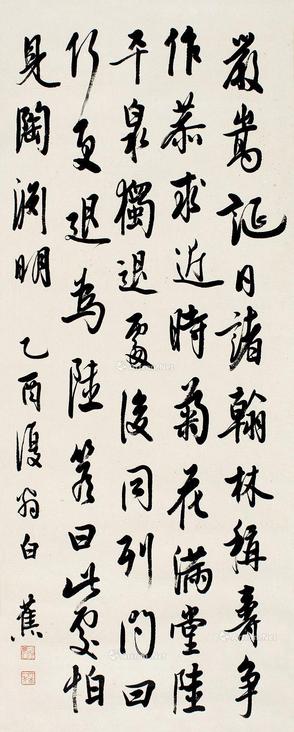 嚴嵩誕日諸翰林稱壽爭
作恭求近時菊花滿堂陸
平泉獨退處後同列問曰
何更退為陸答曰此處怕
見陶淵明 乙酉復翁白蕉